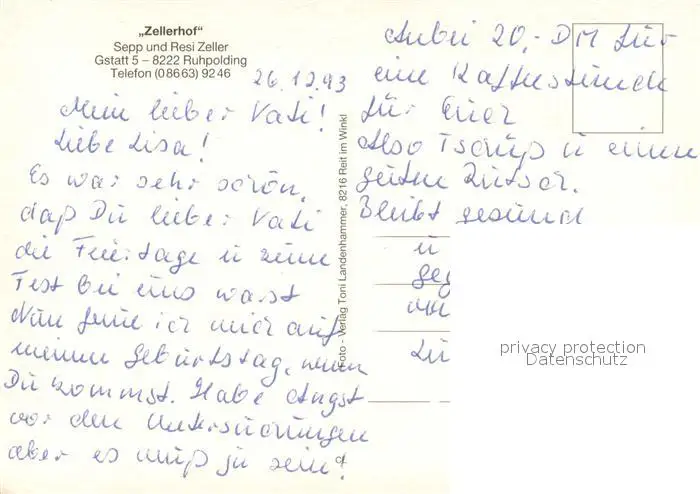 „Zellerhof"
Sepp und Resi Zeller
Gstatt 5 – 8222 Ruhpolding
Telefon (0 86 63) 92 46
26.12.93
Mein lieber Vati!
Liebe Lisa!
Es war sehr schön,
daß Du lieber Vati
die Feiertage u zum
Fest bei uns warst
Nun freue ich mich auf
meinen Geburtstag, wenn
Du kommst. Habe Angst
vor den Untersuchungen
aber es muß ja sein!
Foto - Verlag Toni Landenhammer, 8216 Reit im Winkl
Anbei 20,- DM für
eine Kaffeestunde
für Euer
Also Tschüß u einen
guten Rutsch.
Bleibt gesund
u
geg
privacy protection
Datenschutz